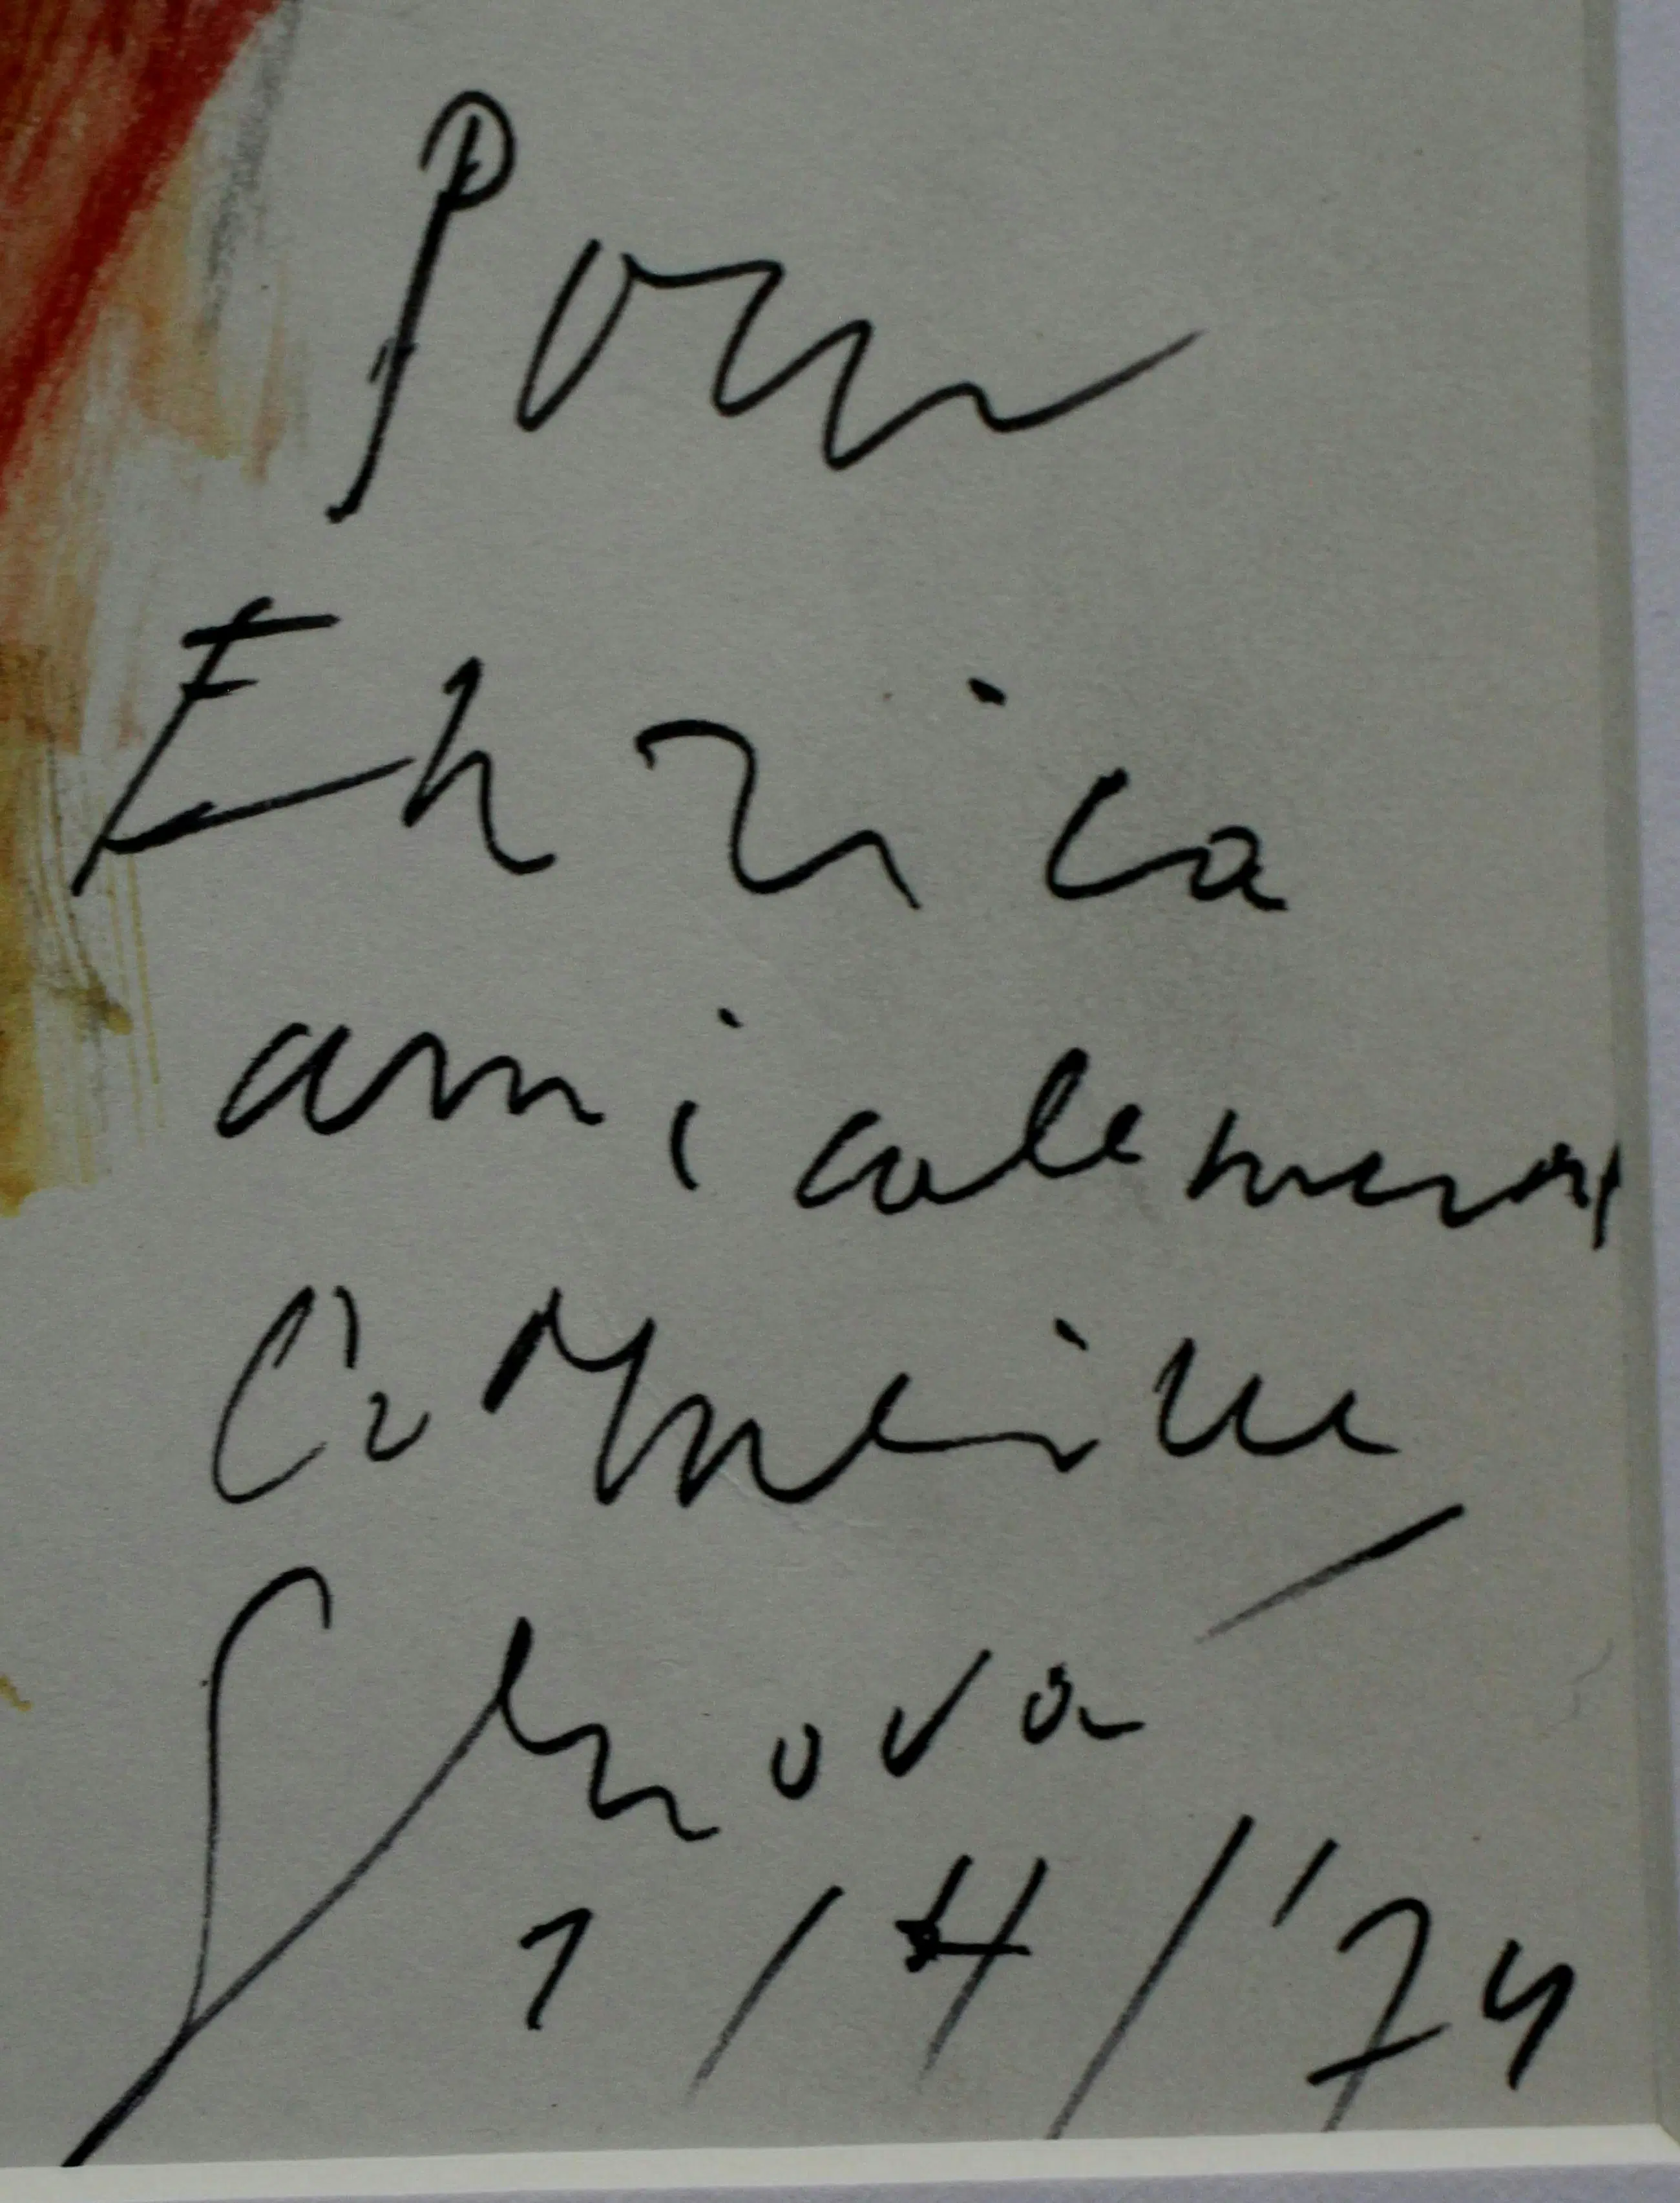 Pour
Enrica
amicalement
Corneille
Genova
1/4/'74